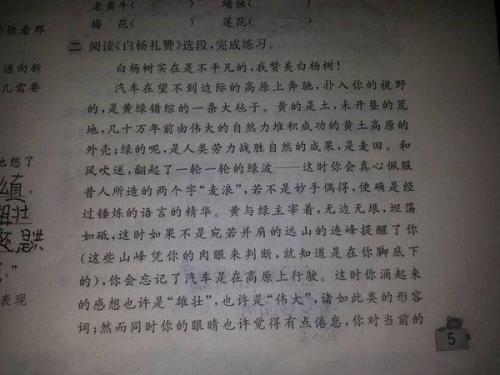 老黄牛( ) 蜡烛( )
)你看那
梅 花( ) 莲花( )
二 阅读《白杨礼赞》选段,完成练习。
通向新
白杨树实在是不平凡的,我赞美白杨树!
儿需要
汽车在望不到边际的高原上奔驰,扑入你的视野
的,是黄绿错综的一条大毡子。黄的是土,未开垦的荒
地,几十万年前由伟大的自然力堆积成功的黄土高原的
外壳;绿的呢,是人类劳力战胜自然的成果,是麦田。和
也想了
风吹送,翻起了一轮一轮的绿波——这时你会真心佩服
昔人所造的两个字“麦浪”,若不是妙手偶得,便确是经
过锤炼的语言的精华。黄与绿主宰着,无边无垠,坦荡
如砥,这时如果不是宛若并肩的远山的连峰提醒了你
(这些山峰凭你的肉眼来判断,就知道是在你脚底下
的),你会忘记了汽车是在高原上行驶。这时你涌起来
表现
的感想也许是“雄壮”,也许是“伟大”,诸如此类的形容
词;然而同时你的眼睛也许觉得有点倦怠,你对当前的
5